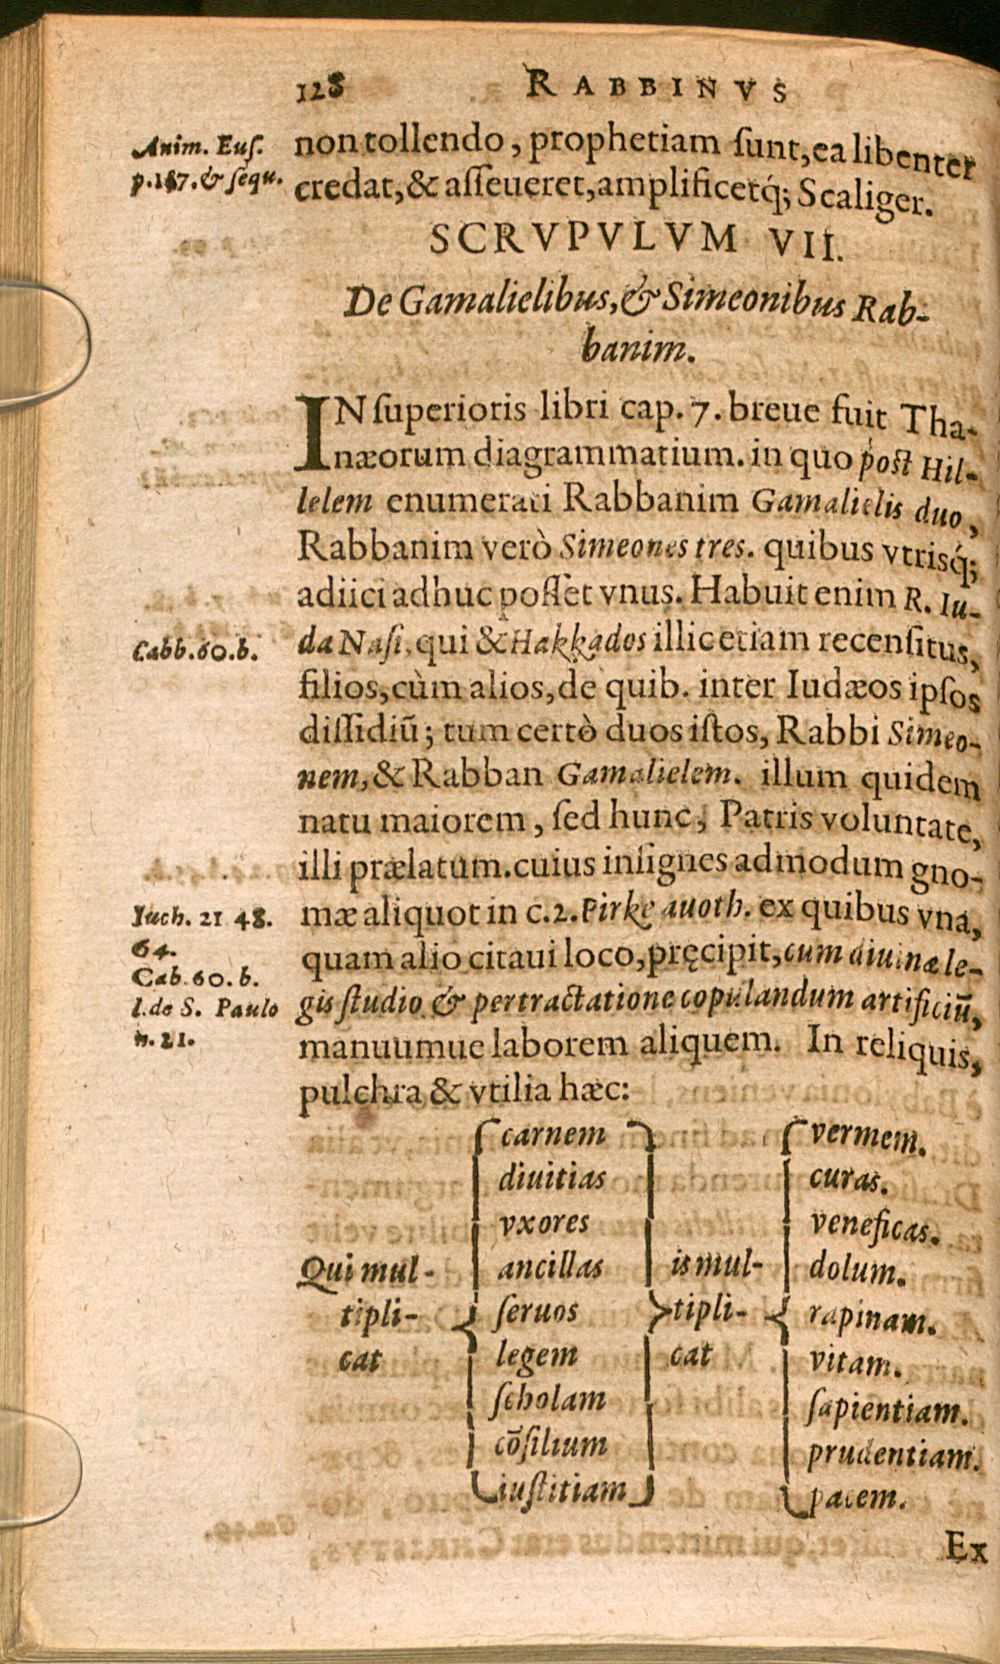 128 RABBINVS
Anim. Euſ.
p.187.& ſequ.
non tollendo, prophetiam ſunt, ea libenter
credat, & aſſeueret, amplificetq́; Scaliger.
SCRVPVLVM VII.
De Gamalielibus, & Simeonibus Rab-
banim.
IN ſuperioris libri cap. 7. breue fuit Tha-
næorum diagrammatium. in quo poſt Hil-
lelem enumerati Rabbanim Gamalielis duo,
Rabbanim verò Simeones tres. quibus vtrisq́;
adiici adhuc poſſet vnus. Habuit enim R. Iu-
Cabb. 60. b.
da Naſi, qui & Hakkados illic etiam recenſitus,
filios, cùm alios, de quib. inter Iudæos ipſos
diſſidiū; tum certò duos iſtos, Rabbi Simeo-
nem, & Rabban Gamalielem. illum quidem
natu maiorem, ſed hunc, Patris voluntate,
illi prælatum. cuius inſignes admodum gno-
Iuch. 21 48.
64.
Cab. 60. b.
l. de S. Paulo
n. 21.
mæ aliquot in c. 2. Pirke auoth. ex quibus vna,
quam alio citaui loco, pręcipit, cum diuinæ le-
gis ſtudio & pertractatione copulandum artificiū,
manuumue laborem aliquem. In reliquis,
pulchra & vtilia hæc:
carnem vermem.
diuitias curas.
vxores veneficas.
Qui mul- ancillas is mul- dolum.
tipli- ſeruos tipli- rapinam.
cat legem cat vitam.
ſcholam ſapientiam.
cōſilium prudentiam.
iuſtitiam pacem.
Ex